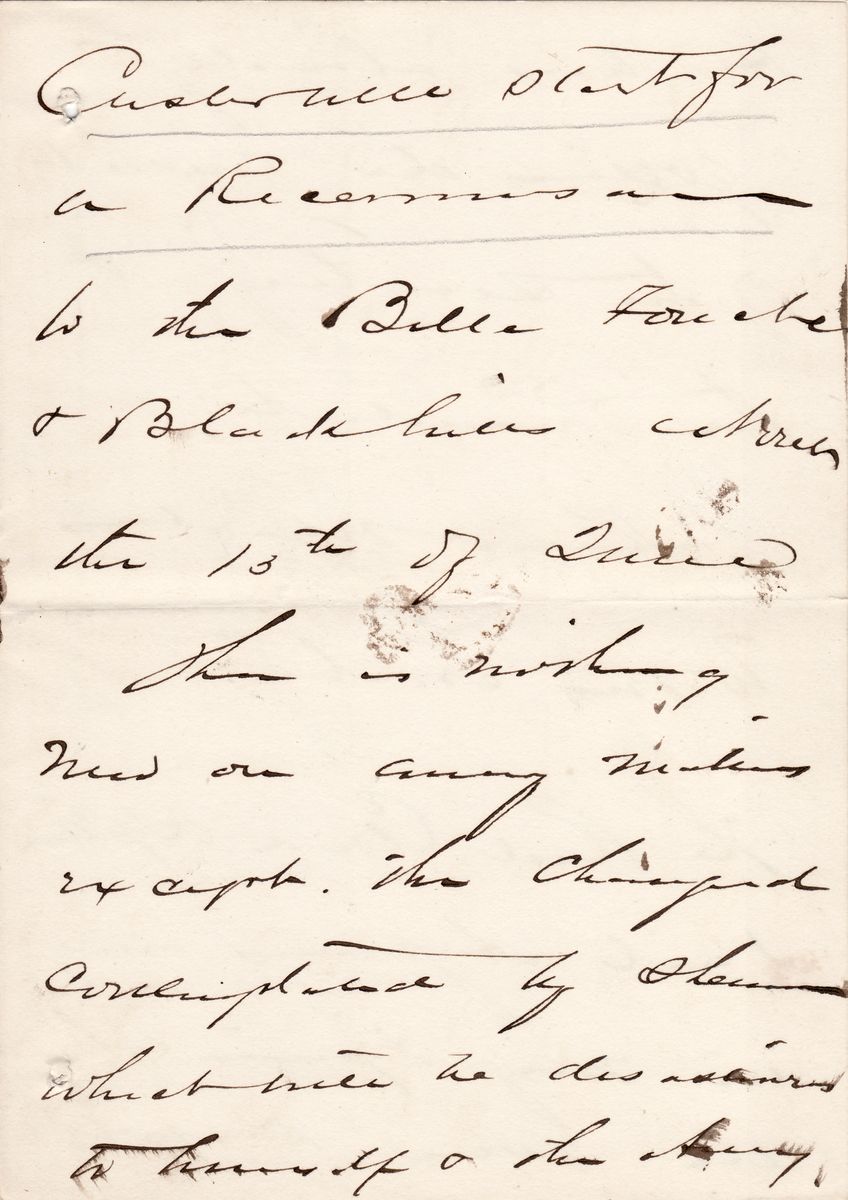 Custer will start for
a Reconnaisance
to the Belle Fouche
& Black hills about
the 15th of June
There is nothing
new on army matters
except. the changes
contemplated by Sherman
which will be disastrous
to himself & the Army